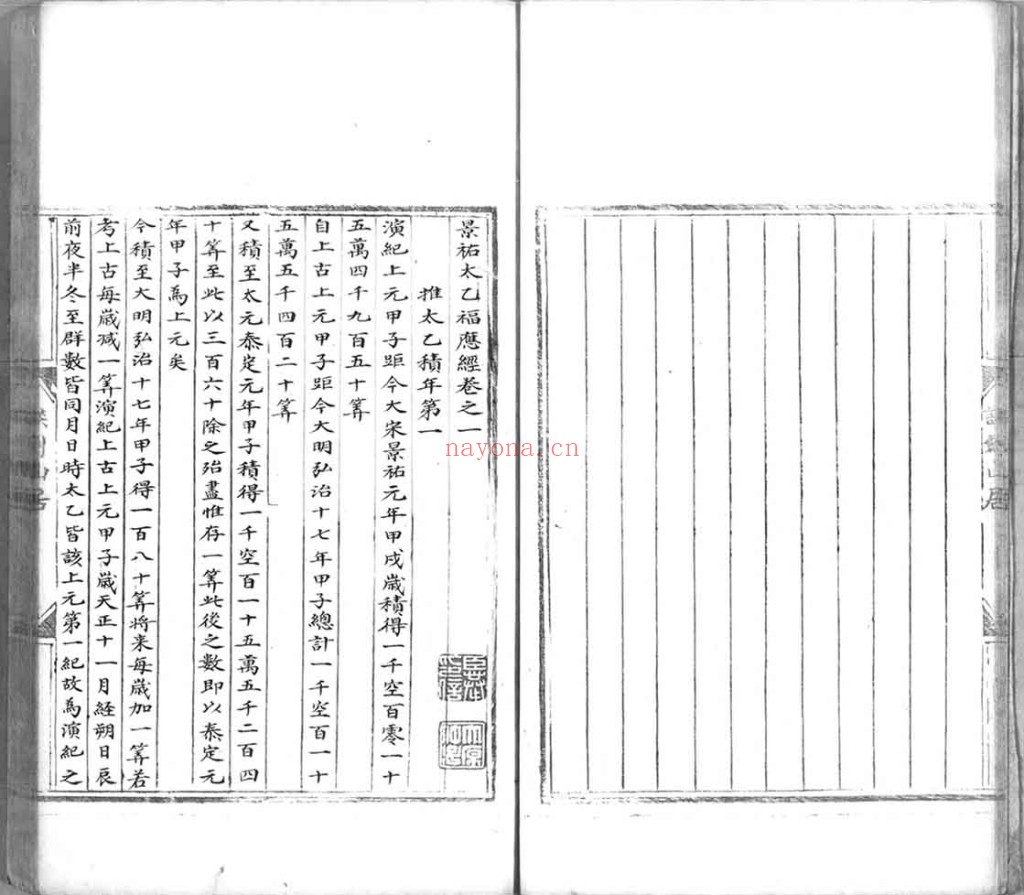 景祐太乙福應經卷之一
推太乙積年第一
演紀上元甲子距今大宋景祐元年甲戌歲積得一千空百零一十
五萬四千九百五十筭
自上古上元甲子距今大明弘治十七年甲子總計一千空百一十
五萬五千四百二十筭
又積至太元泰定元年甲子積得一千空百一十五萬五千二百四
十筭至此以三百六十除之殆盡惟存一筭此後之數即以泰定元
年甲子為上元矣
今積至大明弘治十七年甲子得一百八十筭將来每歲加一筭若
考上古每歲减一筭演紀上古上元甲子歲天正十一月經朔日辰
前夜半冬至群數皆同月日時太乙皆該上元第一紀故為演紀之
nayona.cn